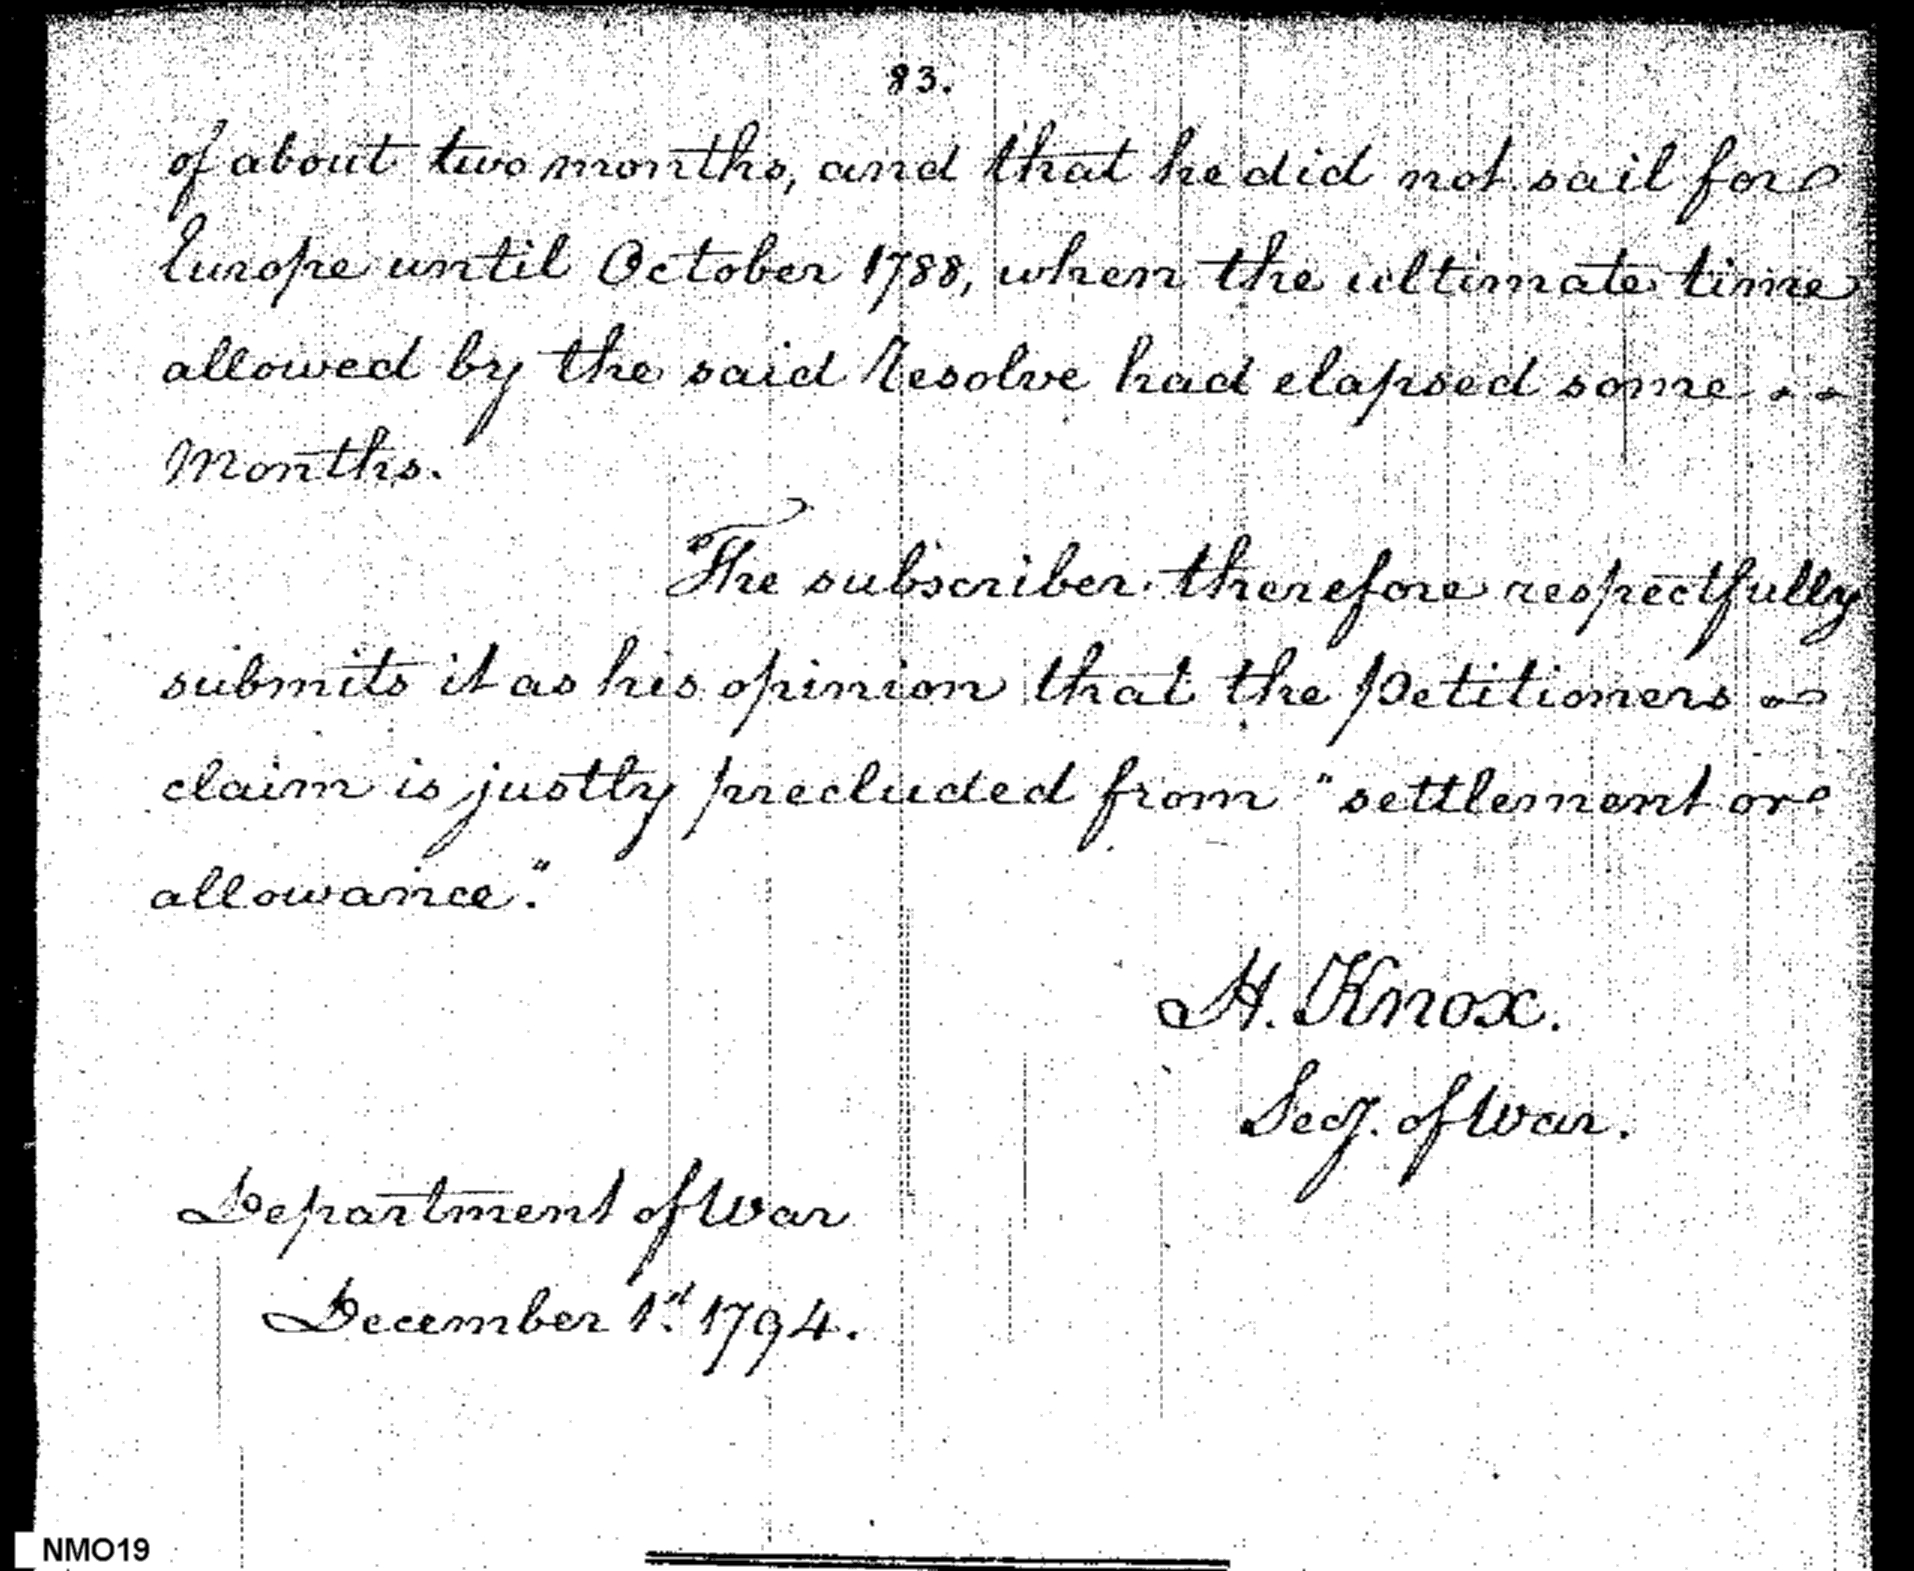 83.
of about two months, and that he did not sail for
Europe until October 1788, when the ultimate time
allowed by the said Resolve had elapsed some
Months.
The subscriber therefore respectfully
submits it as his opinion that the petitioners
claim is justly precluded from "settlement or
allowance."
H. Knox.
Secy. of War.
Department of War
December 1st. 1794.
NMO19